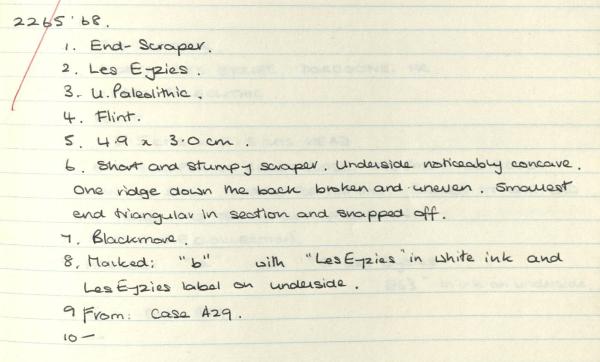 2265'68.
1. End-Scraper.
2. Les Eyzies.
3. U.Paleolithic.
4. Flint.
5. 4.9 x 3.0cm.
6. Short and stumpy scraper. Underside noticeably concave.
One ridge down the back broken and uneven. Smallest
end triangular in section and snapped off.
7. Blackmore.
8. Marked: "b" with "Les Eyzies" in white ink and
Les Eyzies label on underside.
9 From: Case A29.
10 —